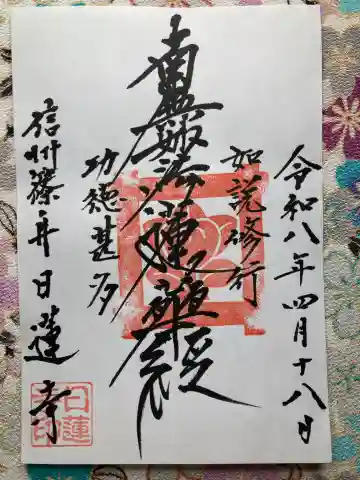 令和八年四月十八日
如説修行
南無妙法蓮華経
功徳甚多
信州篠ノ井日蓮寺
日蓮寺印